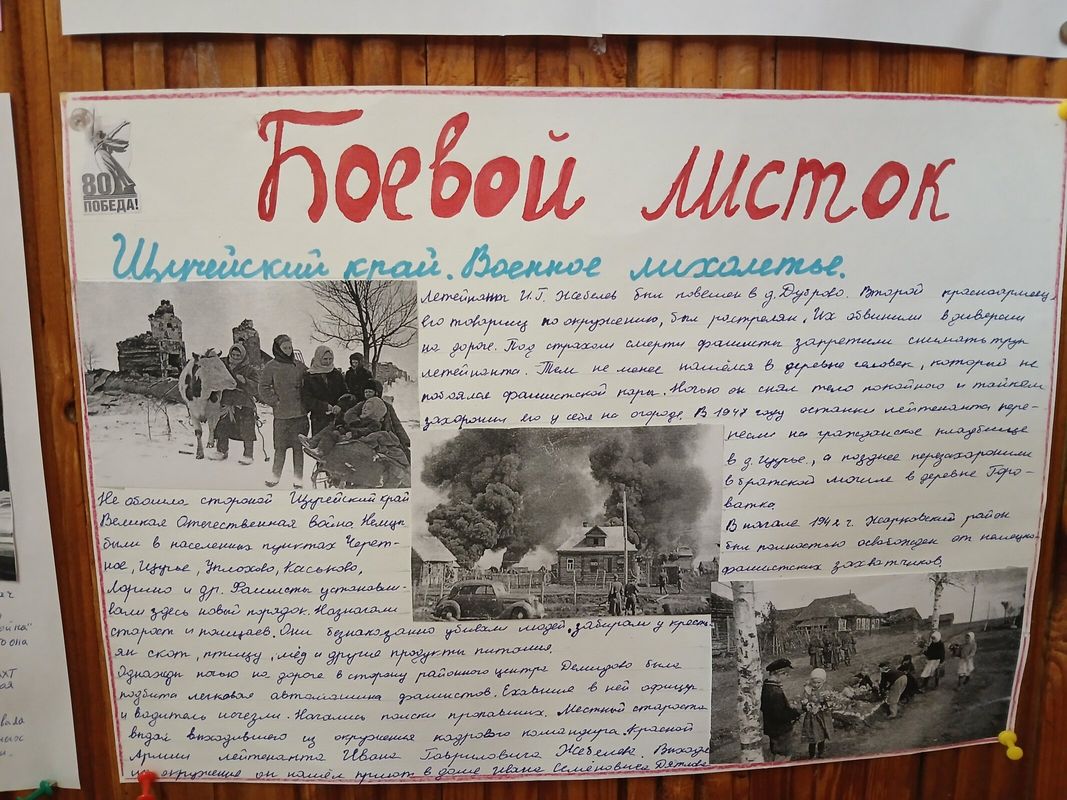 80
ПОБЕДА!
Боевой листок
Щучейский край. Военное лихолетье.
Не обошла стороной Щучейский край
Великая Отечественная война. Немцы
были в населенных пунктах Черет-
ное, Щучье, Уплохово, Каськово,
Ларино и др. Фашисты установи-
вали здесь новый порядок. Назначали
старост и полицаев. Они безнаказанно убивали людей, забирали у кресть-
ян скот, птицу, мёд и другие продукты питания.
Однажды ночью на дороге в сторону районного центра Демидово была
подбита легковая автомашина фашистов. Ехавшие в ней офицер
и водитель исчезли. Начались поиски пропавших. Местный староста
выдал выходившего из окружения кадрового командира Красной
Армии лейтенанта Ивана Гавриловича Жебелева. Выходя
из окружения он нашёл приют в доме Ивана Семёновича Дятлова
Летейнант И.Г. Жебелев был повешен в д. Дуброво. Второй красноармеец,
его товарищ по окружению, был растрелян. Их обвинили в диверсии
на дороге. Под страхом смерти фашисты запретили снимать труп
летейнанта. Тем не менее нашёлся в деревне человек, который не
побоялся фашистской кары. Ночью он снял тело покойного и тайком
захоронил его у себя на огороде. В 1947 году останки лейтенанта пере-
несли на гражданское кладбище
в д. Щучье, а позднее перезахоронили
в братской могиле в деревне Горо-
ватка.
В начале 1942 г. Жарковский район
был полностью освобожден от немецко-
фашистских захватчиков.